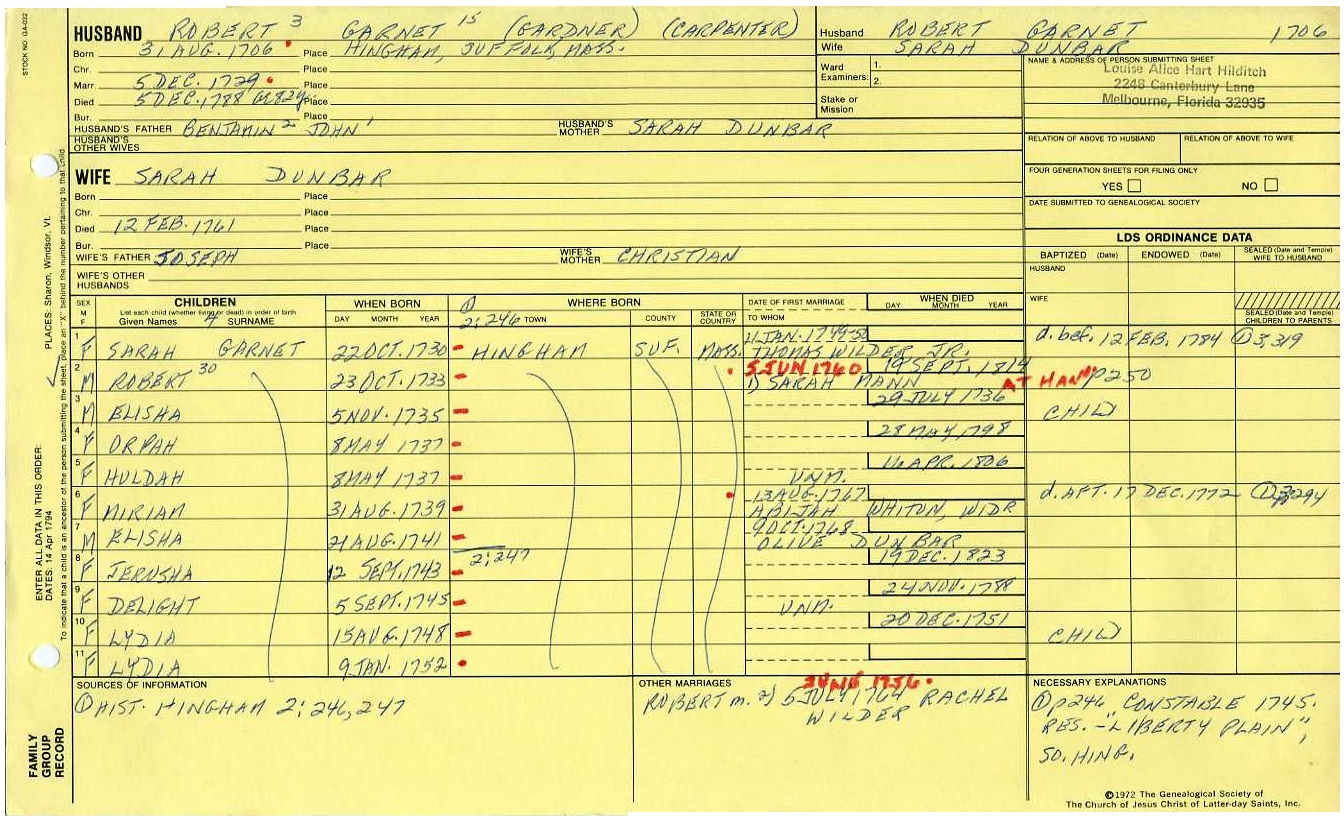 STOCK NO. GA-032
HUSBAND ROBERT 3 GARNET 15 (GARDNER) (CARPENTER)
Born 31 AUG. 1706 Place HINGHAM, SUFFOLK, MASS.
Chr. Place
Marr. 5 DEC. 1729 Place
Died 5 DEC. 1788 Place
Bur. Place
HUSBAND'S FATHER BENJAMIN 2 JOHN 1 HUSBAND'S MOTHER SARAH DUNBAR
HUSBAND'S OTHER WIVES
WIFE SARAH DUNBAR
Born Place
Chr. Place
Died 12 FEB. 1761 Place
Bur. Place
WIFE'S FATHER JOSEPH WIFE'S MOTHER CHRISTIAN
WIFE'S OTHER HUSBANDS
Husband ROBERT GARNET 1706
Wife SARAH DUNBAR
Ward Examiners: 1. 2.
Stake or Mission
NAME & ADDRESS OF PERSON SUBMITTING SHEET
Louise Alice Hart Hilditch
2248 Canterbury Lane
Melbourne, Florida 32935
RELATION OF ABOVE TO HUSBAND RELATION OF ABOVE TO WIFE
FOUR GENERATION SHEETS FOR FILING ONLY
YES NO
DATE SUBMITTED TO GENEALOGICAL SOCIETY
LDS ORDINANCE DATA
BAPTIZED (Date) ENDOWED (Date) SEALED (Date and Temple) WIFE TO HUSBAND
HUSBAND
WIFE
SEALED (Date and Temple) CHILDREN TO PARENTS
SEX M F CHILDREN WHEN BORN WHERE BORN DATE OF FIRST MARRIAGE WHEN DIED
List each child (whether living or dead) in order of birth
Given Names 4 SURNAME DAY MONTH YEAR ① 2:246 TOWN COUNTY STATE OR COUNTRY TO WHOM DAY MONTH YEAR
1 F SARAH GARNET 22 OCT. 1730 HINGHAM SUF. MASS. 11 JAN. 1749-50 THOMAS WILDER JR. d. bef. 12 FEB. 1784 ① 3,319
2 M ROBERT 30 23 OCT. 1733 5 JUN 1760 1) SARAH MANN 19 SEPT. 1814 AT HAN. p250
3 M ELISHA 5 NOV. 1735 29 JULY 1736 CHILD
4 F ORPAH 8 MAY 1737 28 MAY 1798
5 F HULDAH 8 MAY 1737 UNM. 16 APR. 1806
6 F MIRIAM 31 AUG. 1739 13 AUG. 1767 ABIJAH WHITON, WIDR d. AFT. 17 DEC. 1772
7 M ELISHA 21 AUG. 1741 9 OCT. 1768 OLIVE DUNBAR
8 F JERUSHA 12 SEPT. 1743 2:247 19 DEC. 1823
9 F DELIGHT 5 SEPT. 1745 UNM. 24 NOV. 1788
10 F LYDIA 15 AUG. 1748 20 DEC. 1751 CHILD
11 F LYDIA 9 JAN. 1752
SOURCES OF INFORMATION
① HIST. HINGHAM 2:246,247
OTHER MARRIAGES
JUNE 1756.
ROBERT m. 2) 5 JULY 1764 RACHEL
WILDER
NECESSARY EXPLANATIONS
① p246 CONSTABLE 1745.
RES. - "LIBERTY PLAIN",
SO. HING.
©1972 The Genealogical Society of
The Church of Jesus Christ of Latter-day Saints, Inc.
FAMILY GROUP RECORD
ENTER ALL DATA IN THIS ORDER:
DATES: 14 Apr 1794
PLACES: Sharon, Windsor, Vt.
To indicate that a child is an ancestor of the person submitting the sheet, place an "X" behind the number pertaining to that child.